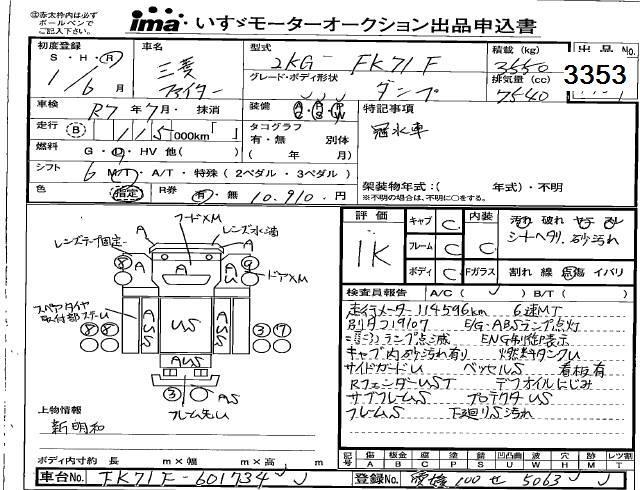 ㊟赤太枠内は必ず
ボールペンで
ご記入下さい。
ima いすゞモーターオークション出品申込書
初度登録
S・H・R
1/6月
車名
三菱
ファイター
型式
2KG-FK71F
グレード・ボディ形状
ダンプ
積載 (kg)
3550
排気量 (cc)
7540
出品 No.
3353
車検
R7年7月・抹消
装備
走行
B
115000km
タコグラフ
有・無 別体
( 年 月)
燃料
G・D・HV 他( )
シフト
6 M/T・A/T・特殊 (2ペダル・3ペダル)
色
指定
R券
有・無 10,910.円
特記事項
冠水車
架装物年式:( 年式)・不明
※不明の場合は、不明に○をする。
レンズテープ固定
A
フードXM
レンズ水滴
A
8
A
A
A
9
ドアXM
スペアタイヤ
取付部スチーム
AUS
US
AUS
8 8
3 7
AUS
3
AS
フレーム先U
上物情報
新明和
ボディ内寸約 長 m×幅 m×高 m
評価
1K
キャブ C
フレーム C
ボディ C
内装
C
Fガラス
汚れ 破れ ヤケ スレ
シートヘタリ、砂汚れ
割れ 線 点傷 イバリ
検査員報告 A/C( ) B/T( )
走行メーター114596km 6速MT
別タコ19107 E/G・ABSランプ点灯
ランプ点滅 ENG制御表示
キャブ内砂汚れ有り 燃料タンクU
サイドガードU ベッセルS 看板有
RフェンダーUST デフオイルにじみ
サブフレームS プロテクタUS
フレームS 下廻りS汚れ
記号 傷 板金 腐 塗 錆 凹凸曲 波 穴 跡 レツ割
A B C P S U W H M T
車台No. FK71F-601734
登録No. 愛媛 100 せ 5063